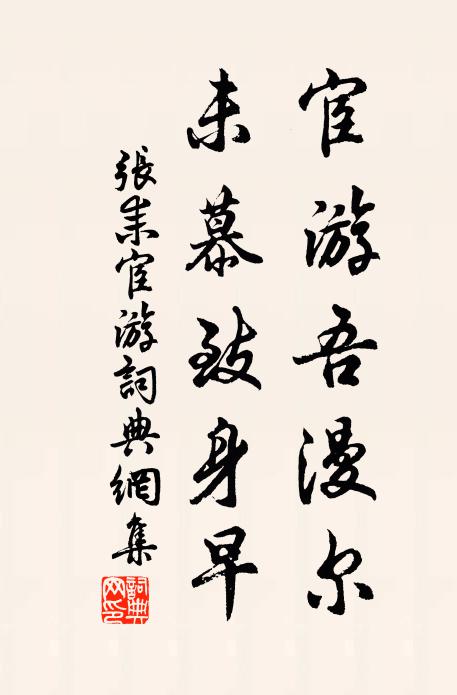 宦游吾漫尔
未慕致身早
張耒宦游詞典網集
詞典网印